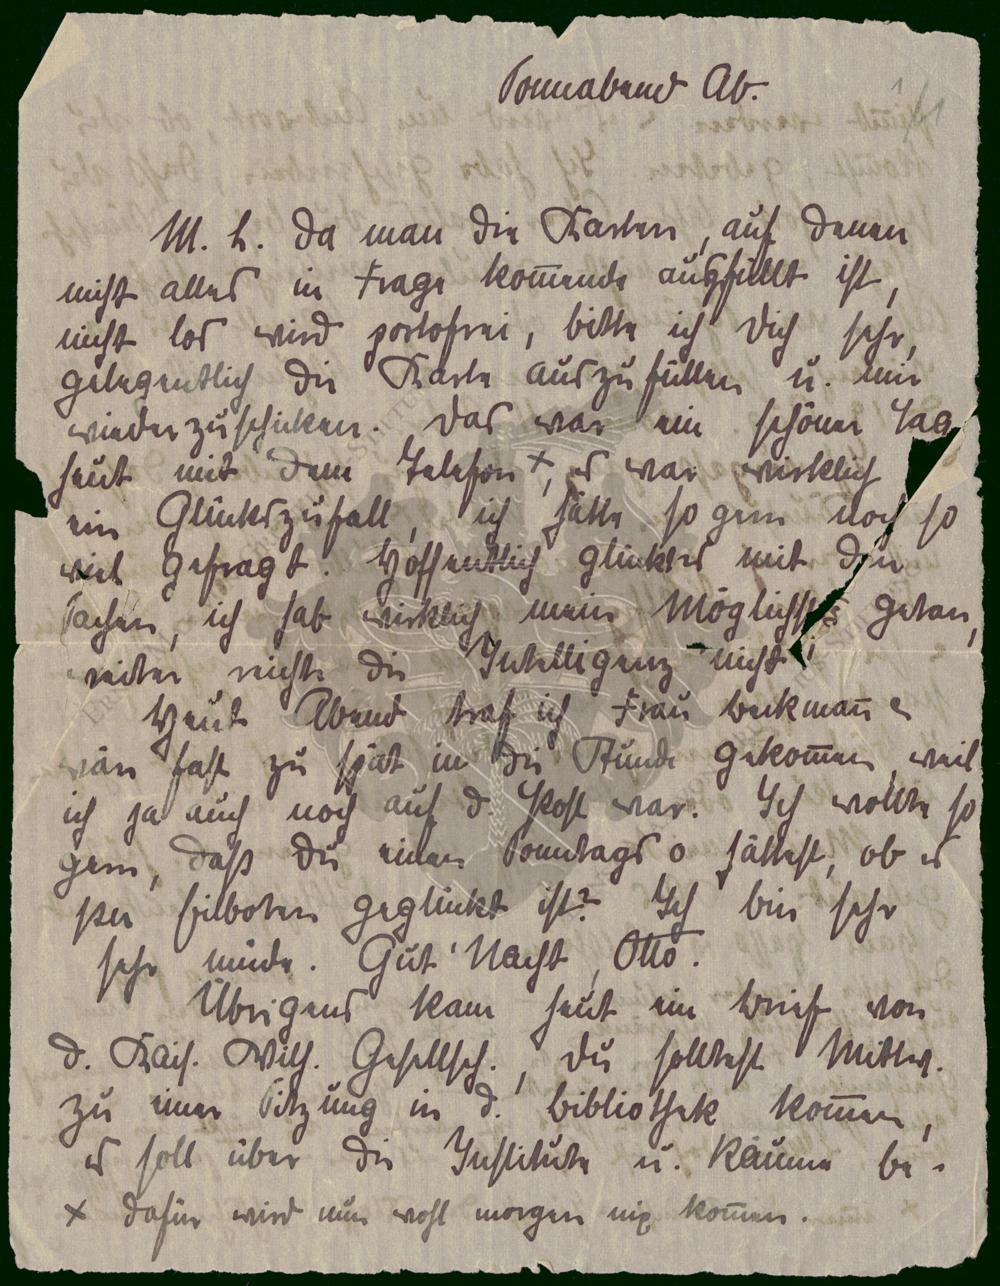 Sonnabend Ab.
M. L. Da man die Karten, auf denen
nicht alles in Frage kom̅ende ausgefüllt ist,
nicht los wird portofrei, bitte ich Dich sehr,
gelegentlich die Karte auszufüllen u. mir
wiederzuschicken. Das war ein schöner Tag
heut mit dem Telefon x, es war wirklich
ein Glückszufall, ich hätte so gern noch so
viel gefragt. Höffentlich glückt es mit den
Sachen, ich hab wirklich mein Möglichstes getan,
weiter reicht die Intelligenz nicht!
Heut Abend traf ich Frau Beckman̅ &
wär fast zu spät in die Stunde gekom̅en, weil
ich ja auch noch auf d. Post war. Ich wollte so
gern, daß Du einen Sonntags o hättest, ob es
per Eilboten geglückt ist? Ich bin sehr
sehr müde. Gut' Nacht, Otto.
Übrigens kam heut ein Brief von
d. Kais. Wilh. Gesellsch., Du solltest Mittw.
zu einer Sitzung in d. Bibliothek kom̅en,
es soll über die Institute u. Räume be-
x dafür wird nun wohl morgen nix kom̅en.